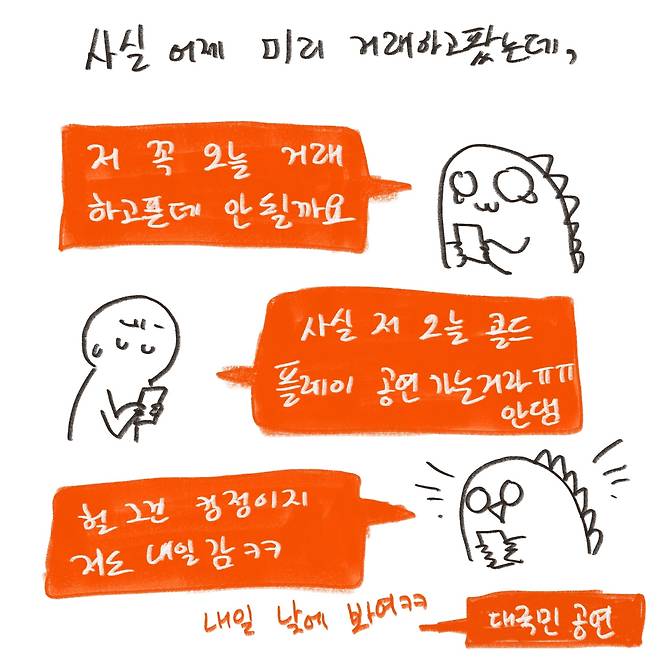 사실 어제 미리 거래하고팠는데,
저 꼭 오늘 거래
하고픈데 안될까요
사실 저 오늘 콜드
플레이 공연 가는거라ㅠㅠ
안댐
헐 그건 킹정이지
저도 내일감ㅋㅋ
내일 낮에 봐여ㅋㅋ
대국민 공연